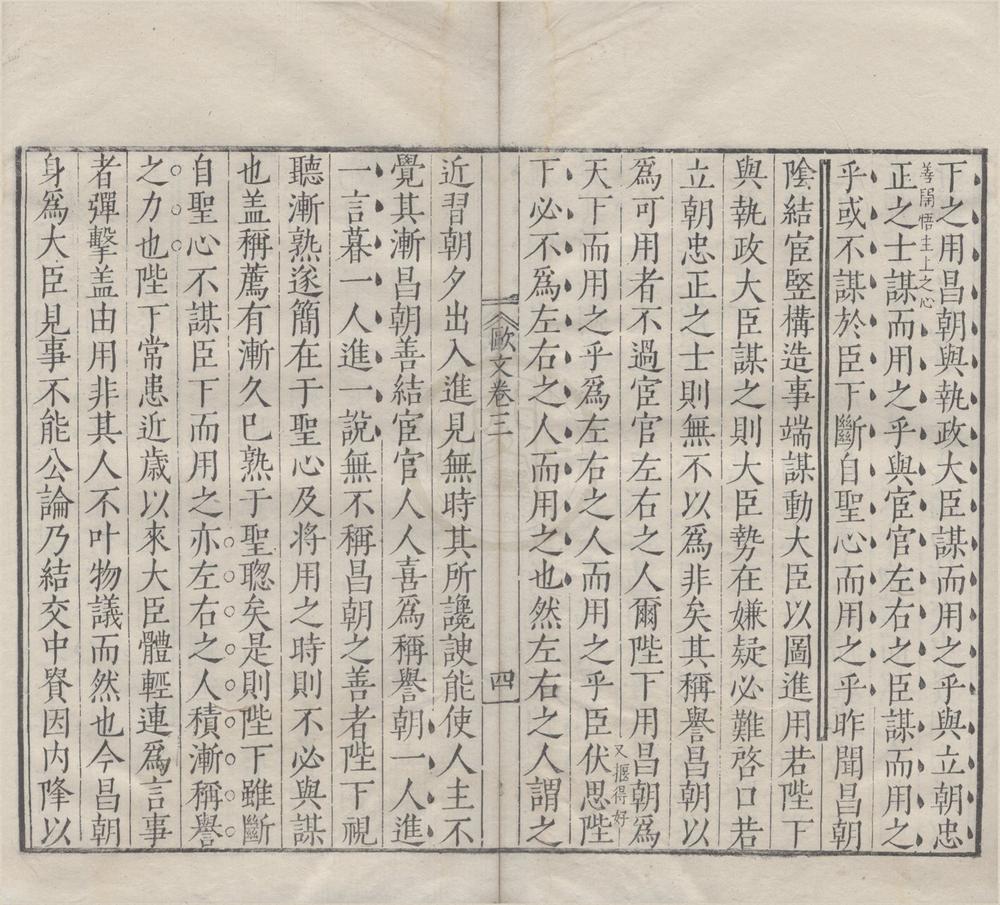 下之用昌朝與執政大臣謀而用之乎與立朝忠
善開悟主上之心
正之士謀而用之乎與宦官左右之臣謀而用之
乎或不謀於臣下斷自聖心而用之乎昨聞昌朝
陰結宦豎構造事端謀動大臣以圖進用若陛下
與執政大臣謀之則大臣勢在嫌疑必難啓口若
立朝忠正之士則無不以爲非矣其稱譽昌朝以
爲可用者不過宦官左右之人爾陛下用昌朝爲
又搌得好
天下而用之乎爲左右之人而用之乎臣伏思陛
下必不爲左右之人而用之也然左右之人謂之
歐文卷三
四
近習朝夕出入進見無時其所讒諛能使人主不
覺其漸昌朝善結宦官人人喜爲稱譽朝一人進
一言暮一人進一說無不稱昌朝之善者陛下視
聽漸熟遂簡在于聖心及將用之時則不必與謀
也盖稱薦有漸久已熟于聖聰矣是則陛下雖斷
自聖心不謀臣下而用之亦左右之人積漸稱譽
之力也陛下常患近歲以來大臣體輕連爲言事
者彈擊盖由用非其人不叶物議而然也今昌朝
身爲大臣見事不能公論乃結交中貴因內降以